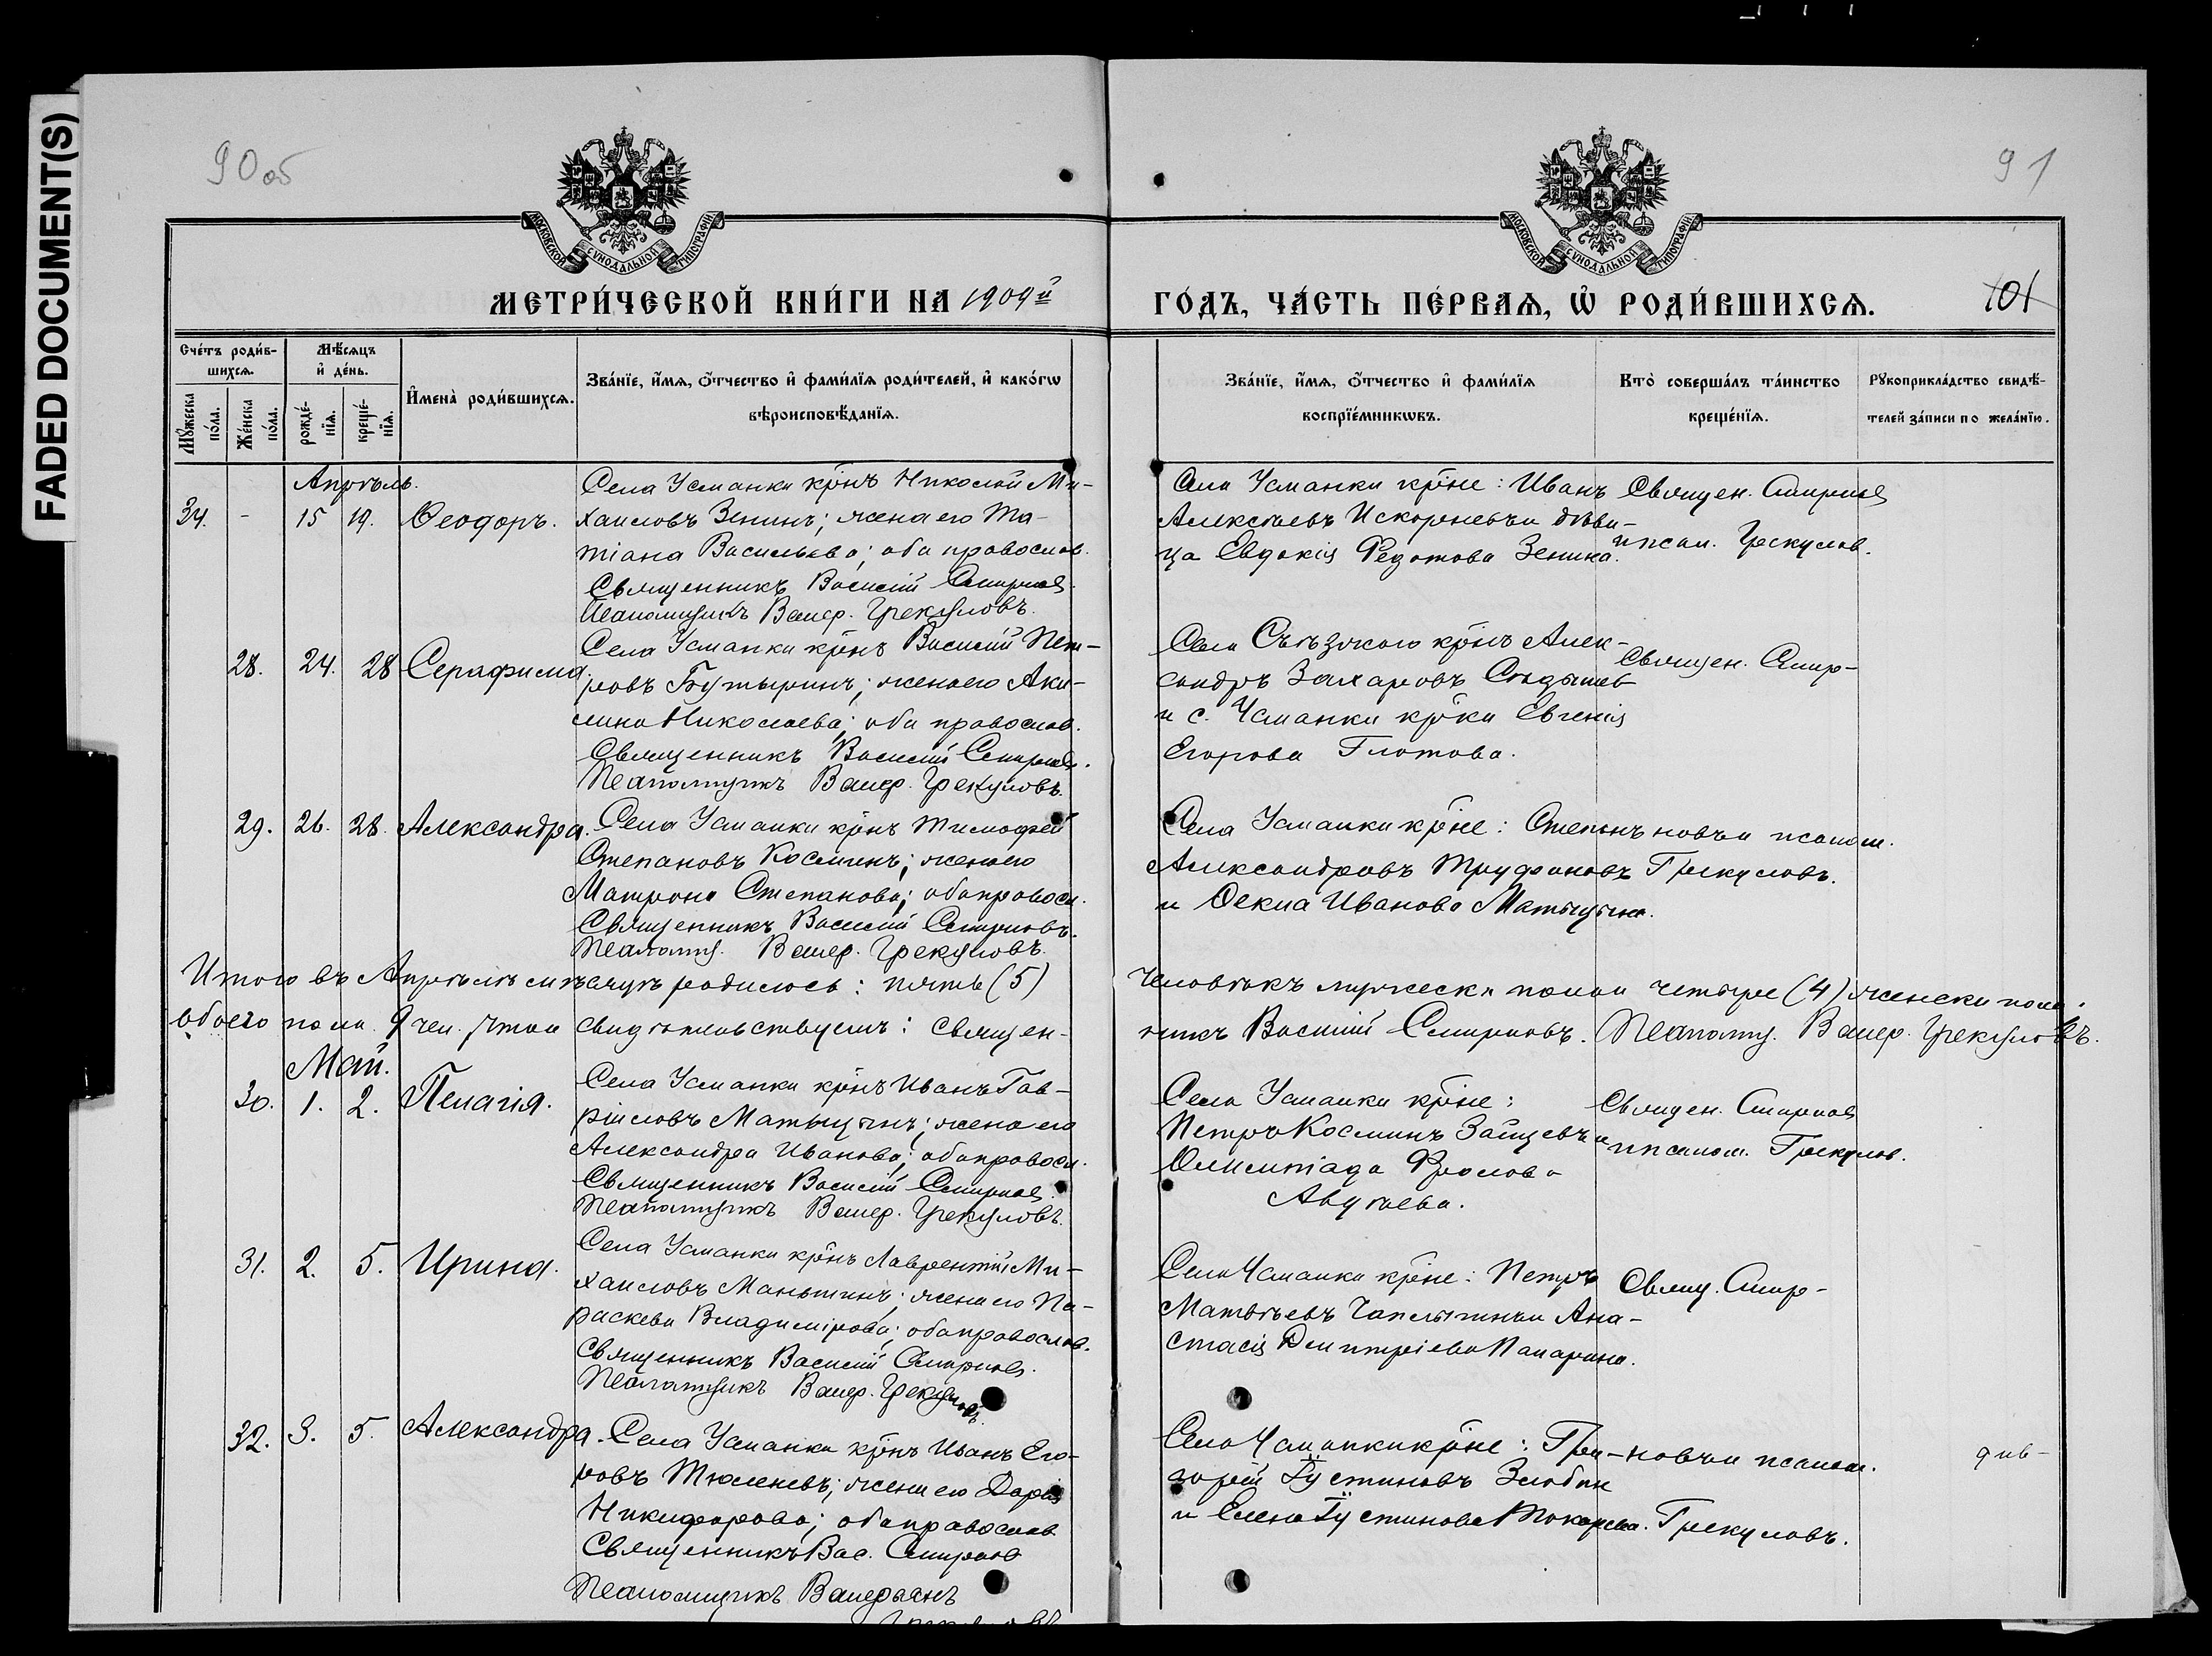 FADED DOCUMENT(S)
90 об
91
МОСКОВСКОЙ СѴНОДАЛЬНОЙ ТИПОГРАФІИ
МОСКОВСКОЙ СѴНОДАЛЬНОЙ ТИПОГРАФІИ
МЕТРИ́ЧЕСКОЙ КНИ́ГИ НА 1909й
ГО́ДЪ, ЧА́СТЬ ПЕ́РВАѦ, Ѡ҆ РОДИ́ВШИХСѦ.
101
Сче́тъ роди́в-
шихсѧ.
Мѣ́сѧцъ
и҆ де́нь.
Мꙋ́жеска
по́ла.
Же́нска
по́ла.
рожде́-
нїѧ.
креще́-
нїѧ.
И҆мена̀ роди́вшихсѧ.
Зва́нїе, и҆́мѧ, ѻ҆́тчество и҆ фами́лїѧ роди́телей, и҆ како́гѡ
вѣроисповѣ́данїѧ.
Зва́нїе, и҆́мѧ, ѻ҆́тчество и҆ фами́лїѧ
воспрїе́мникѡвъ.
Кто̀ соверша́лъ та́инство
креще́нїѧ.
Рꙋкоприкла́дство свидѣ́-
телей за́писи по жела́нїю.
Апрѣль.
34. - 15 19. Ѳеодоръ.
Села Усманки крнъ Николай Ми-
хаиловъ Зенинъ; жена его Та-
тіана Васильева; оба православ.
Священникъ Василій Смирновъ.
Псаломщикъ Валер. Грекуловъ.
Села Усманки крне: Иванъ
Алексѣевъ Искорневъ и дѣви-
ца Евдокія Федотова Зенина.
Священ. Смирновъ
и псал. Грекулов.
28. 24. 28 Серафима.
Села Усманки крнъ Василій Пет-
ровъ Бутыринъ; жена его Аки-
лина Николаева; оба православ.
Священникъ Василій Смирновъ.
Псаломщикъ Валер. Грекуловъ.
Села Съѣзжаго крнъ Алек-
сандръ Захаровъ
и с. Усманки крка Евгенія
Егорова Глотова.
Священ. Смир-
29. 26. 28. Александра.
Села Усманки крнъ Тимофей
Степановъ Косминъ; жена его
Матрона Степанова; оба правосл.
Священникъ Василій Смирновъ.
Псаломщ. Валер. Грекуловъ.
Села Усманки крне: Степанъ
Александровъ Труфановъ
и Ѳекла Иванова Матыцына.
новъ и псалом.
Грекуловъ.
Итого въ Апрѣлѣ мѣсяцѣ родилось: пять (5)
человѣкъ мужеска пола и четыре (4) женска пола.
обоего пола 9 чел. Что и свидѣтельствуемъ: Священ-
никъ Василій Смирновъ. Псаломщ. Валер. Грекуловъ.
Май.
30. 1. 2. Пелагія.
Села Усманки крнъ Иванъ Гав-
ріиловъ Матыцынъ; жена его
Александра Иванова; оба правосл.
Священникъ Василій Смирновъ.
Псаломщикъ Валер. Грекуловъ.
Села Усманки крне:
Петръ Косминъ Зайцевъ и
Олимпіада Фролова
Авдѣева.
Священ. Смирновъ
и псалом. Грекулов.
31. 2. 5. Ирина.
Села Усманки крнъ Лаврентій Ми-
хаиловъ Маньшинъ; жена его Па-
раскева Владимірова; оба православ.
Священникъ Василій Смирновъ.
Псаломщикъ Валер. Грекуловъ.
Села Усманки крне: Петръ
Матвѣевъ Чаплыгинъ и Ана-
стасія Димитріева Папарина.
Свящ. Смир-
32. 3. 5. Александра.
Села Усманки крнъ Иванъ Его-
ровъ Тюленевъ; жена его Дарія
Никифорова; оба православ
Священникъ Вас. Смирнов
Псаломщикъ Валерьянъ
Грекуловъ
Села Усманки крне: Гри-
горій Іустиновъ Злобин
и Елена Іустинова Токарева.
новъ и псалом.
Грекуловъ.